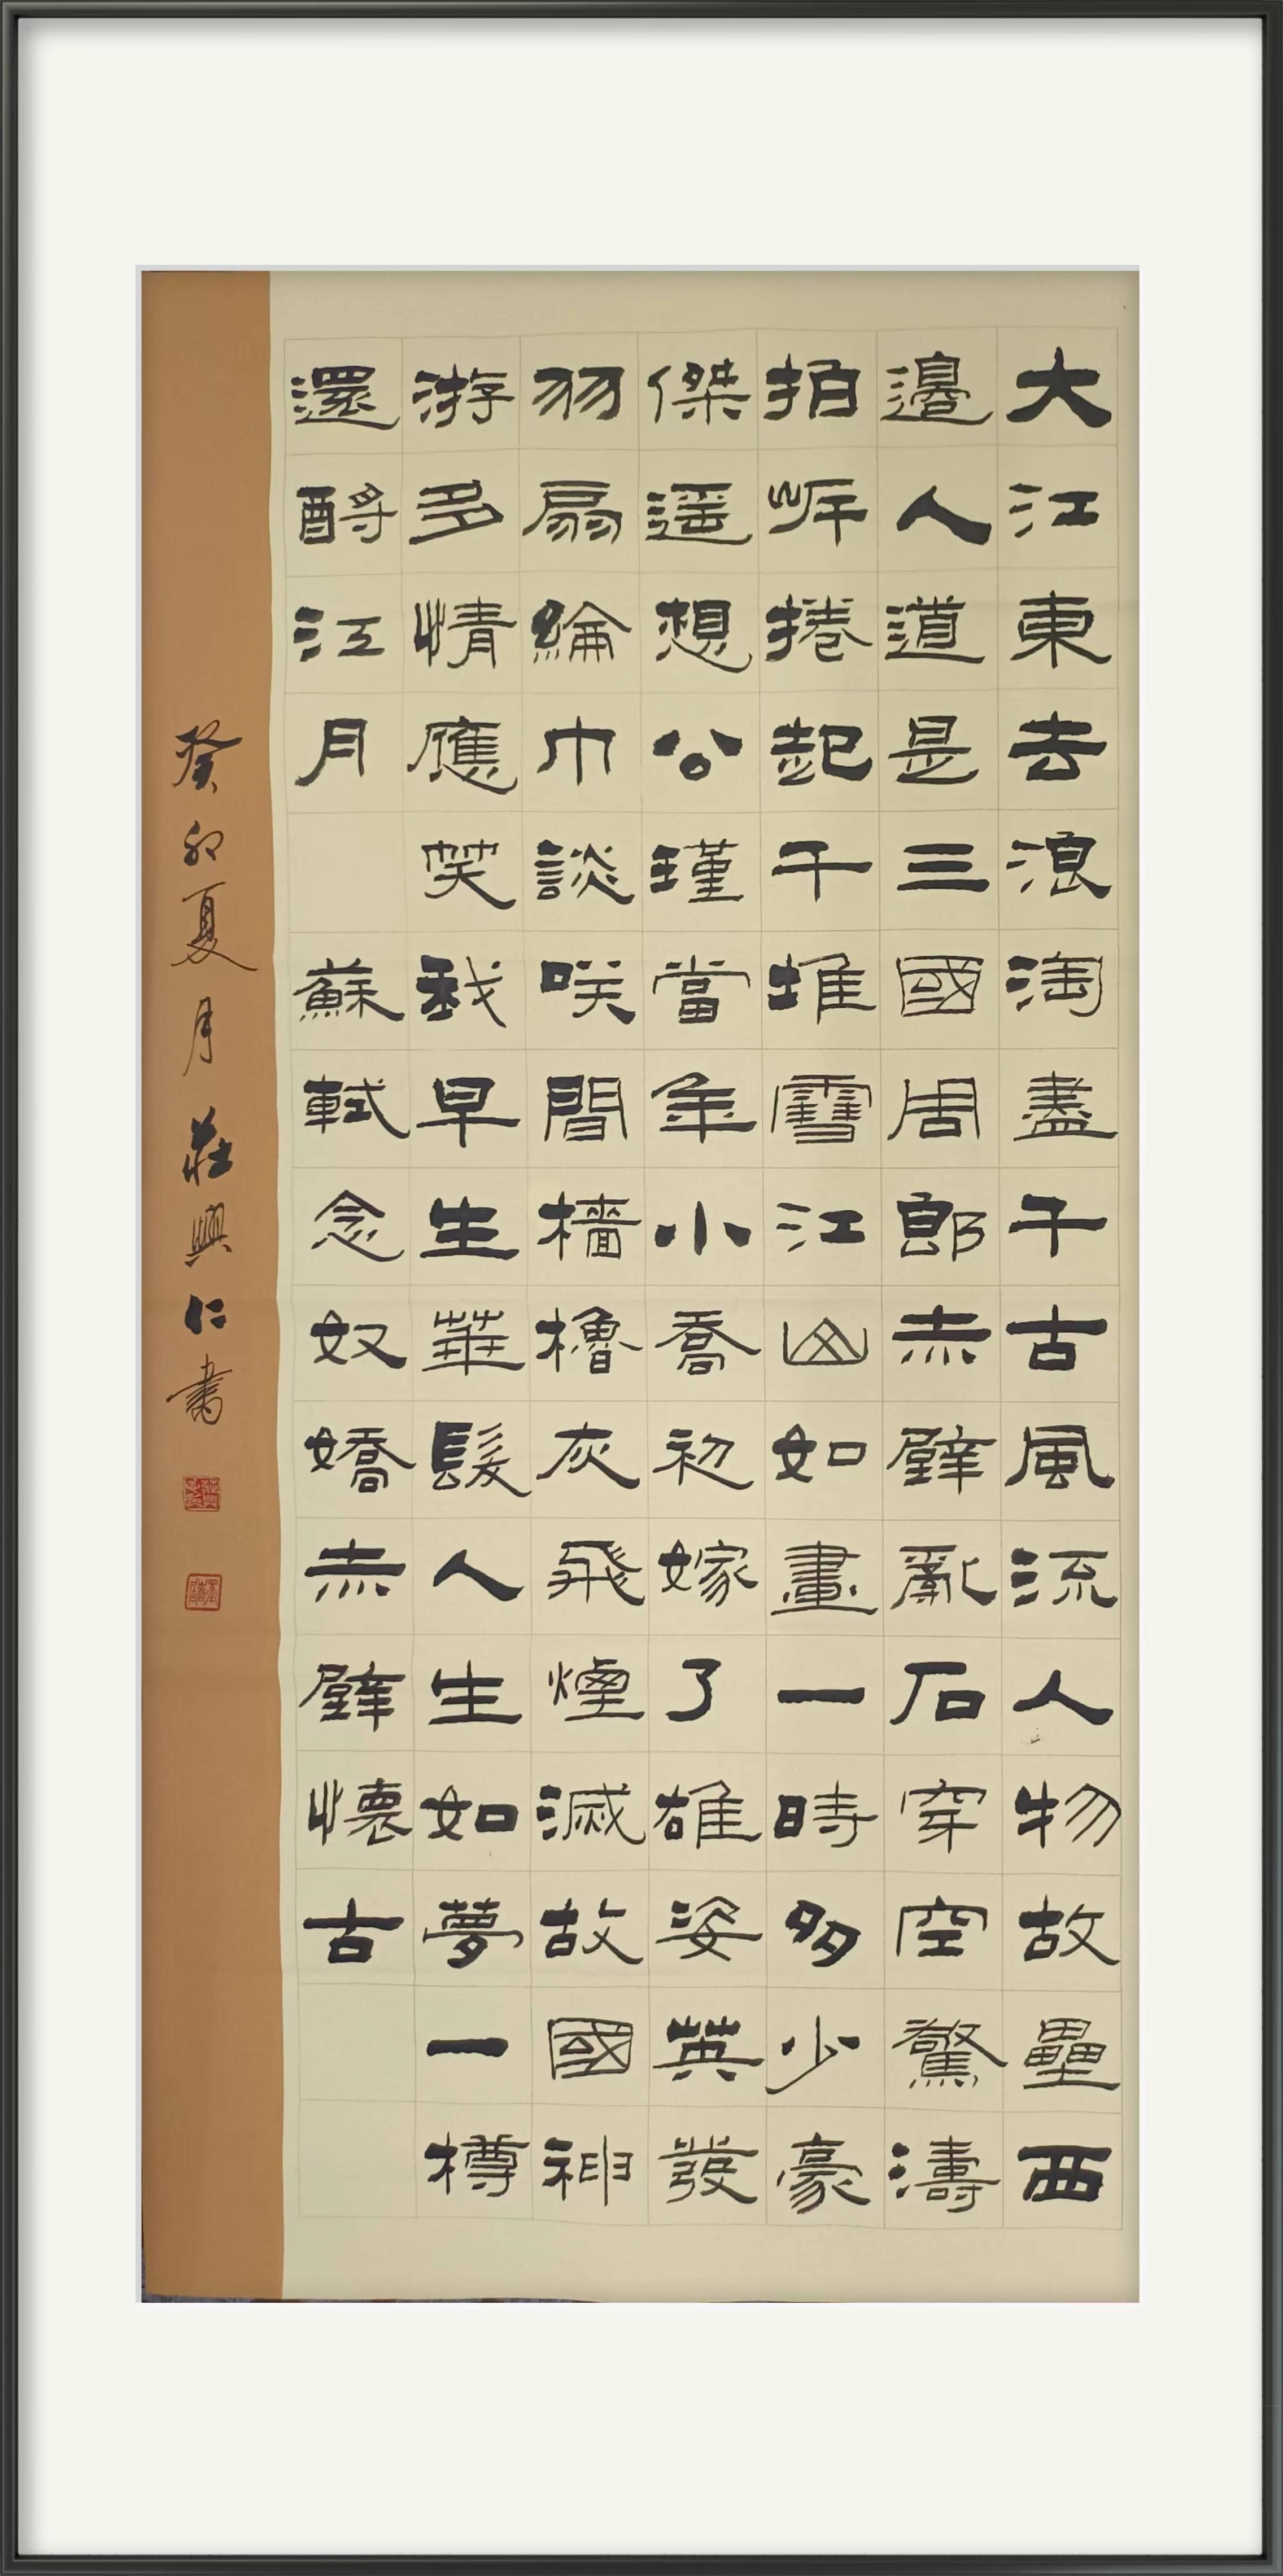 大江東去浪淘盡千古風流人物故壘西
邊人道是三國周郎赤壁亂石穿空驚濤
拍岸捲起千堆雪江山如畫一時多少豪
傑遥想公瑾當年小喬初嫁了雄姿英發
羽扇綸巾談咲間檣櫓灰飛煙滅故國神
游多情應笑我早生華髮人生如夢一樽
還酹江月 蘇軾念奴嬌赤壁懷古
癸卯夏月莊興仁書